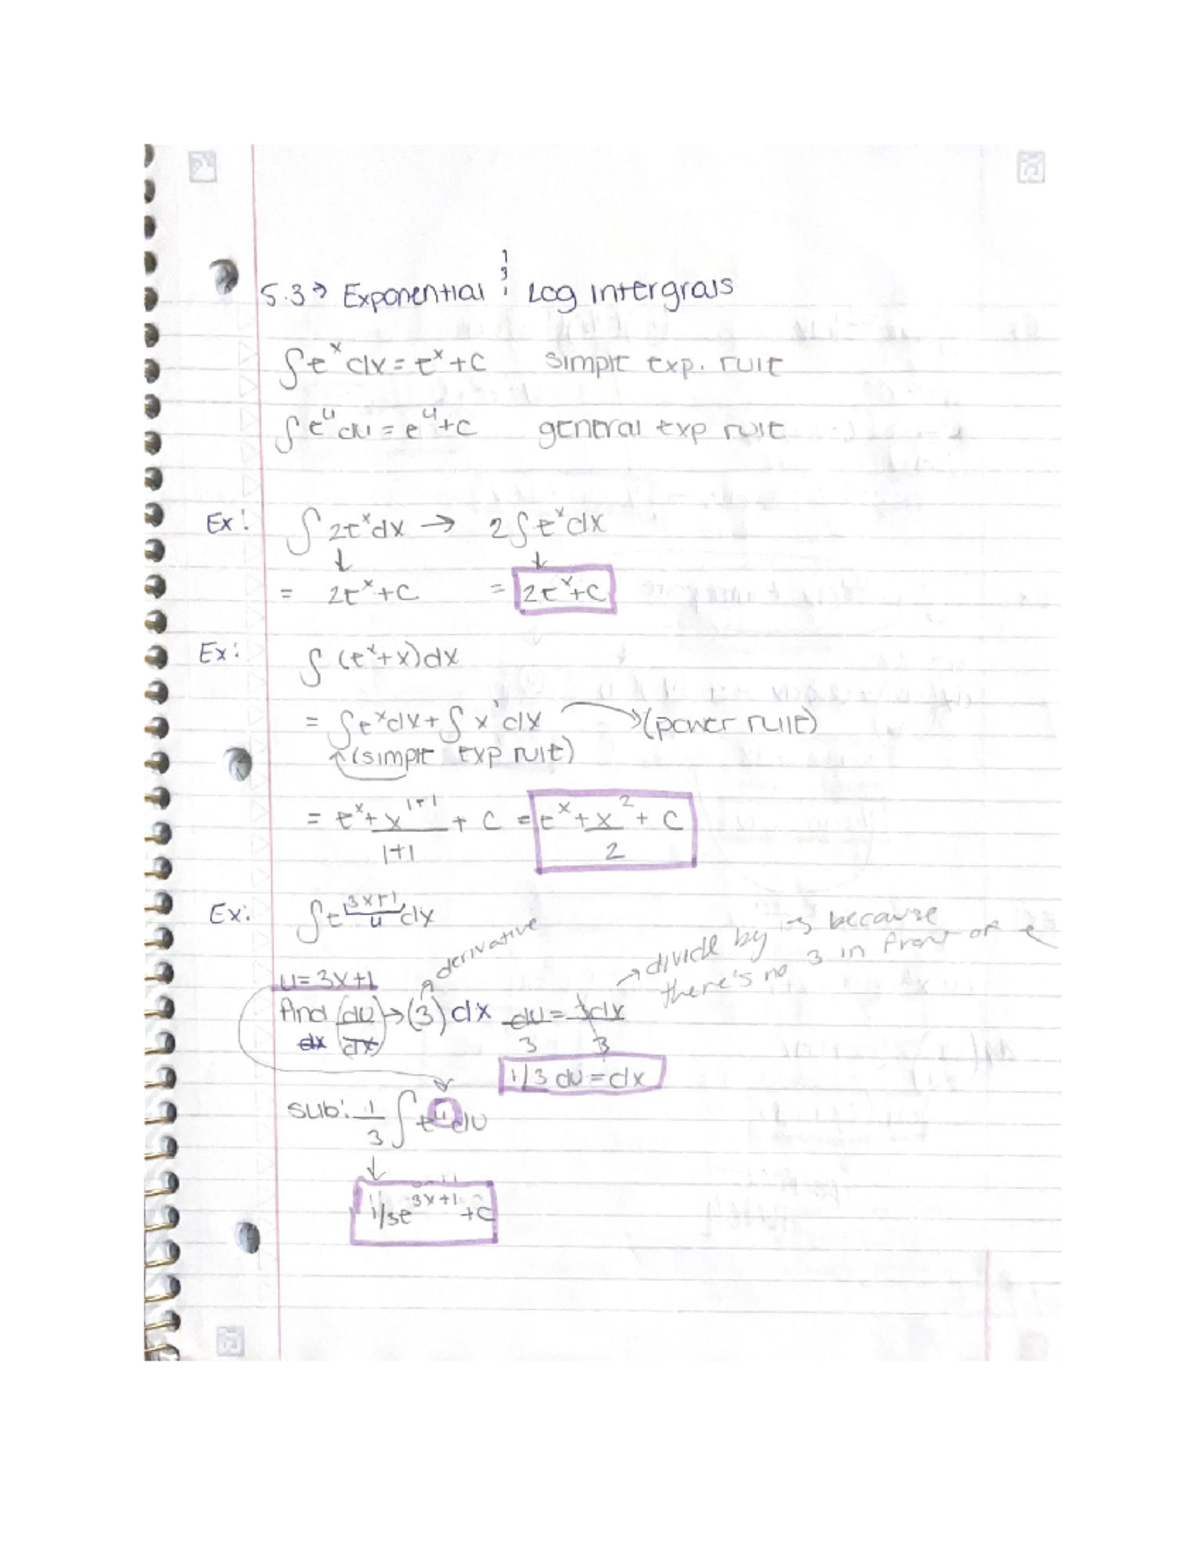 5.3→ Exponential & Log Intergrals
∫e^x dx = e^x + C simple exp. rule
∫e^u du = e^u + C general exp rule
Ex: ∫2e^x dx → 2∫e^x dx
↓ ↓
= 2e^x + C = 2e^x + C
Ex: ∫(e^x + x)dx
= ∫e^x dx + ∫x^1 dx →(power rule)
(simple exp rule)
= e^x + x^(1+1)/(1+1) + C = e^x + x^2/2 + C
Ex: ∫e^(3x+1) dx
u
derivative
→ divide by 3 because
there's no 3 in front of e
u = 3x+1
find (du/dx) → (3) dx du/3 = 3dx/3
dx
1/3 du = dx
sub: 1/3 ∫e^u du
↓
1/3e^(3x+1) + C